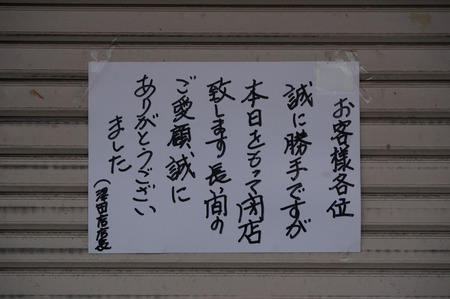 お客様各位
誠に勝手ですが
本日をもって閉店
致します長い間の
ご愛顧、誠に
ありがとうござい
ました